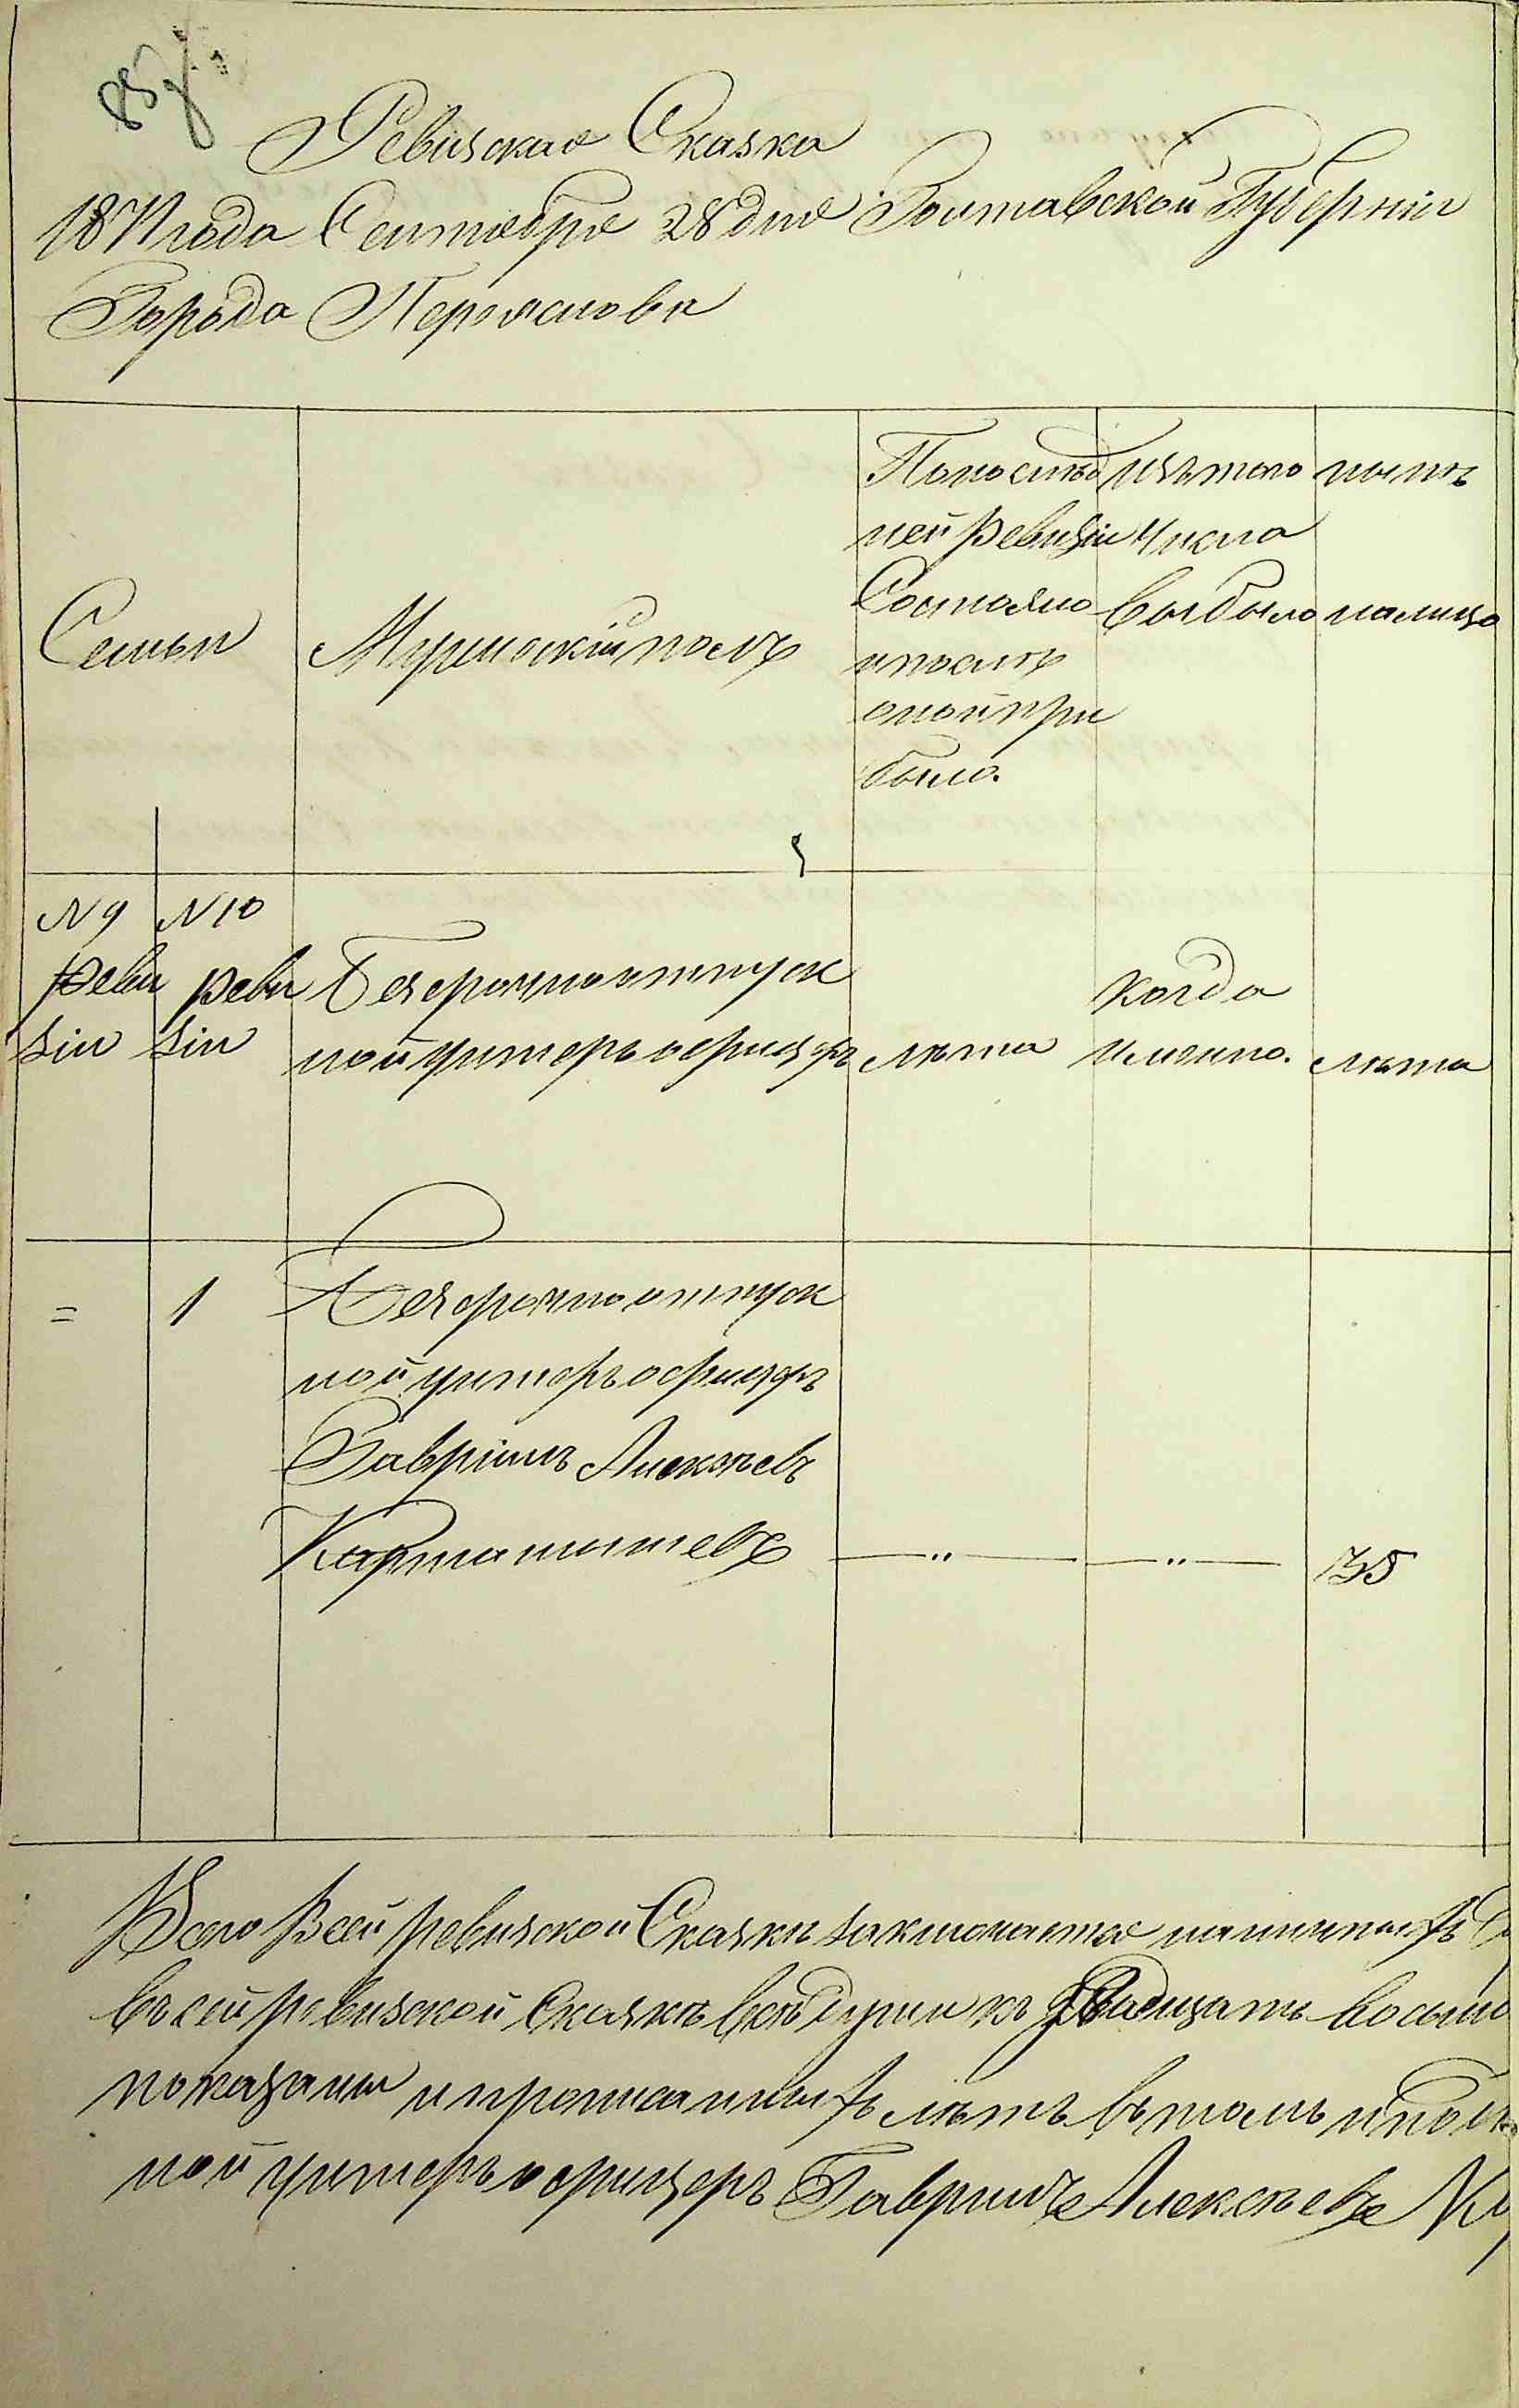 Ревизская Сказка
18 года Сентября 28 дня Полтавской Губерніи
Города Переяслова
Семьи
Мужескій полъ
По послѣд
ней Ревизіи
Состояло
и послѣ
оной при
было.
Изъ того
Числа
выбыло
нынѣ
налицо
N 9
реви
зіи
N 10
реви
зіи
Безсрочно отпуск
ной унтеръ офицеръ
лѣта
Когда
Именно.
лѣта
=
1
Безсрочно отпуск
ной унтеръ офицеръ
Гавріилъ Алексѣевъ
Карташевъ
—„—
—„—
35
Всего Всей ревизской Сказки заключается наличныхъ
въ сей ревизской Сказкѣ всѣ души къ двадцать восьмо
показаны и прописанныхъ лѣтъ въ томъ и
ной унтеръ офицеръ Гавриилъ Алексѣевъ